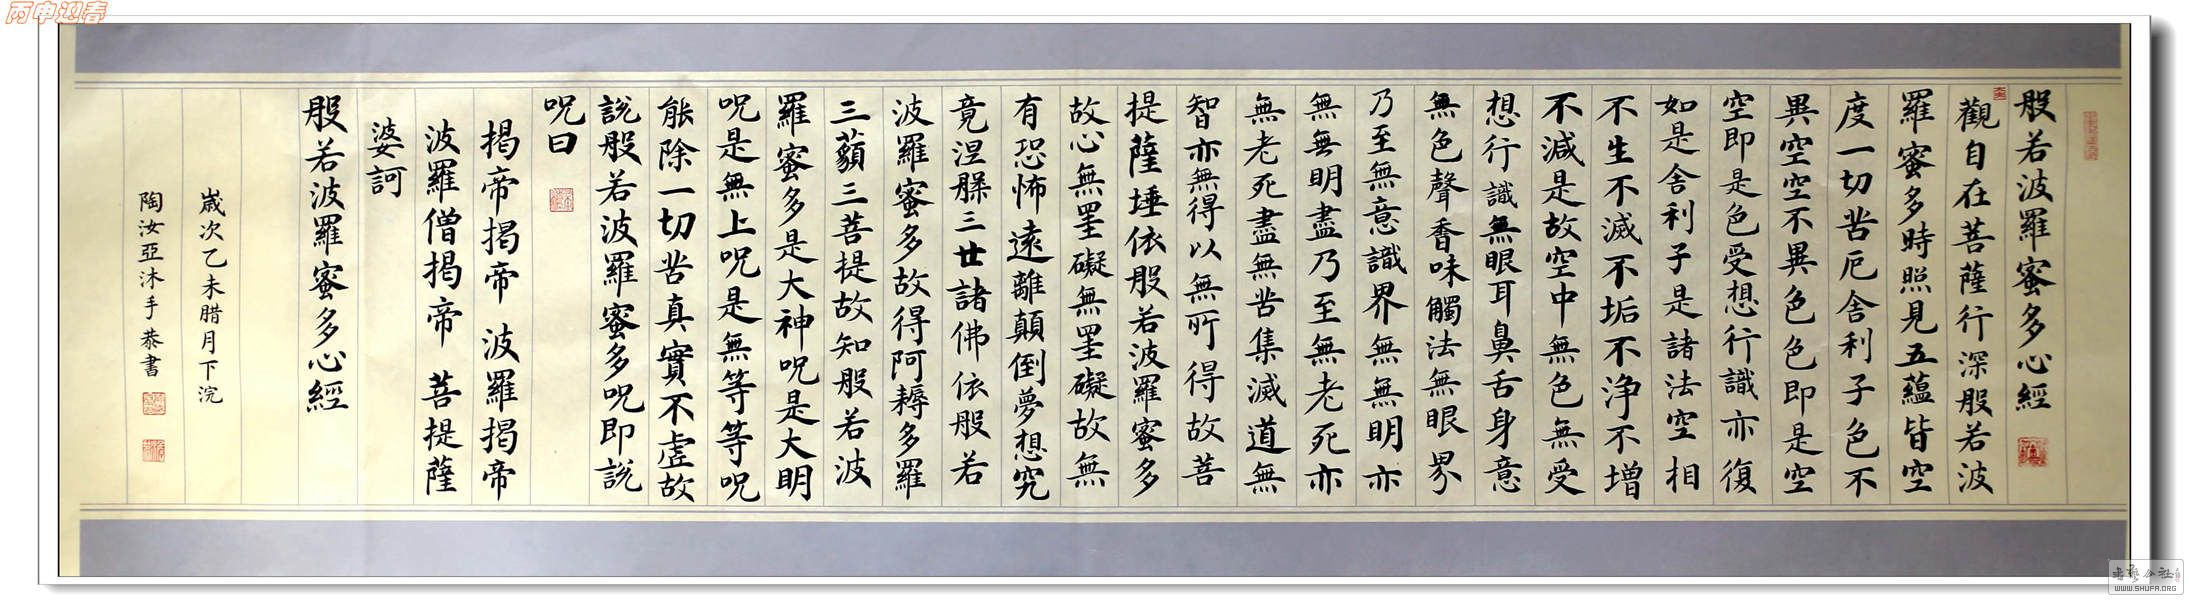 丙申迎春
般若波羅蜜多心經
觀自在菩薩行深般若波
羅蜜多時照見五蘊皆空
度一切苦厄舍利子色不
異空空不異色色即是空
空即是色受想行識亦復
如是舍利子是諸法空相
不生不滅不垢不淨不增
不減是故空中無色無受
想行識無眼耳鼻舌身意
無色聲香味觸法無眼界
乃至無意識界無無明亦
無無明盡乃至無老死亦
無老死盡無苦集滅道無
智亦無得以無所得故菩
提薩埵依般若波羅蜜多
故心無罣礙無罣礙故無
有恐怖遠離顛倒夢想究
竟涅槃三世諸佛依般若
波羅蜜多故得阿耨多羅
三藐三菩提故知般若波
羅蜜多是大神呪是大明
呪是無上呪是無等等呪
能除一切苦真實不虛故
說般若波羅蜜多呪即說
呪曰
揭帝揭帝 波羅揭帝
波羅僧揭帝 菩提薩
婆訶
般若波羅蜜多心經
歲次乙未腊月下浣
陶汝亞沐手恭書
書藝公社
WWW.SHUFA.ORG